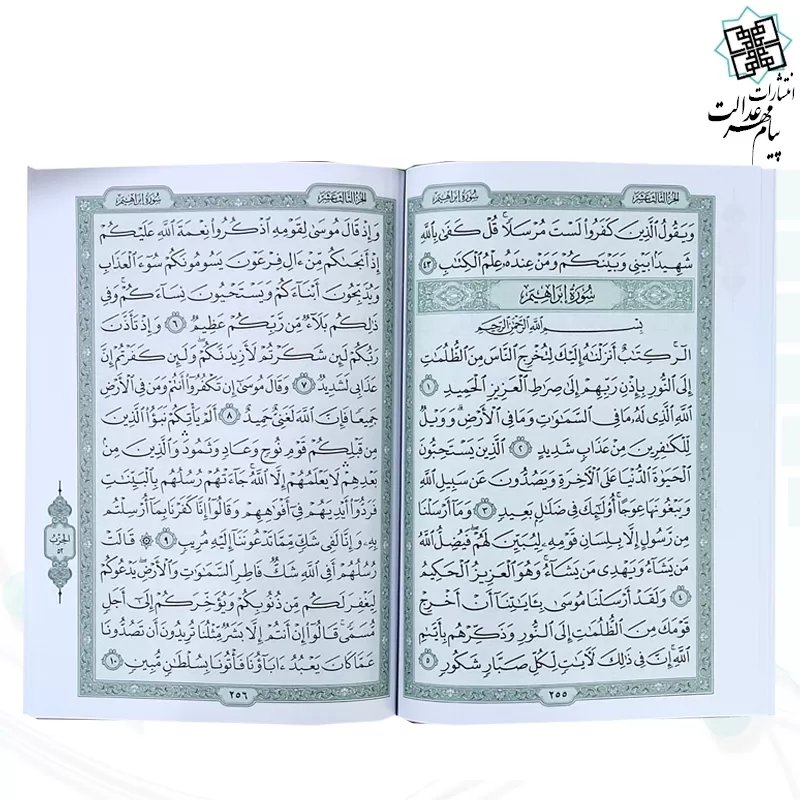 انتشارات
پیام مهر عدالت
سُورَةُ إِبْرَاهِيمَ
الجُزءُ الثَّالِثَ عَشَرَ
وَيَقُولُ الَّذِينَ كَفَرُوا لَسْتَ مُرْسَلًا ۚ قُلْ كَفَىٰ بِاللَّهِ
شَهِيدًا بَيْنِي وَبَيْنَكُمْ وَمَنْ عِندَهُ عِلْمُ الْكِتَابِ ٤٣
سُورَةُ إِبْرَاهِيمَ
بِسْمِ اللَّهِ الرَّحْمَٰنِ الرَّحِيمِ
الٓر ۚ كِتَابٌ أَنزَلْنَاهُ إِلَيْكَ لِتُخْرِجَ النَّاسَ مِنَ الظُّلُمَاتِ
إِلَى النُّورِ بِإِذْنِ رَبِّهِمْ إِلَىٰ صِرَاطِ الْعَزِيزِ الْحَمِيدِ ١
اللَّهِ الَّذِي لَهُ مَا فِي السَّمَاوَاتِ وَمَا فِي الْأَرْضِ ۗ وَوَيْلٌ
لِّلْكَافِرِينَ مِنْ عَذَابٍ شَدِيدٍ ٢ الَّذِينَ يَسْتَحِبُّونَ
الْحَيَاةَ الدُّنْيَا عَلَى الْآخِرَةِ وَيَصُدُّونَ عَن سَبِيلِ اللَّهِ
وَيَبْغُونَهَا عِوَجًا ۚ أُولَٰئِكَ فِي ضَلَالٍ بَعِيدٍ ٣ وَمَا أَرْسَلْنَا
مِن رَّسُولٍ إِلَّا بِلِسَانِ قَوْمِهِ لِيُبَيِّنَ لَهُمْ ۖ فَيُضِلُّ اللَّهُ
مَن يَشَاءُ وَيَهْدِي مَن يَشَاءُ ۚ وَهُوَ الْعَزِيزُ الْحَكِيمُ
٤ وَلَقَدْ أَرْسَلْنَا مُوسَىٰ بِآيَاتِنَا أَنْ أَخْرِجْ
قَوْمَكَ مِنَ الظُّلُمَاتِ إِلَى النُّورِ وَذَكِّرْهُم بِأَيَّامِ
اللَّهِ ۚ إِنَّ فِي ذَٰلِكَ لَآيَاتٍ لِّكُلِّ صَبَّارٍ شَكُورٍ ٥
٢٥٥
سُورَةُ إِبْرَاهِيمَ
الجُزءُ الثَّالِثَ عَشَرَ
وَإِذْ قَالَ مُوسَىٰ لِقَوْمِهِ اذْكُرُوا نِعْمَةَ اللَّهِ عَلَيْكُمْ
إِذْ أَنجَاكُم مِّنْ آلِ فِرْعَوْنَ يَسُومُونَكُمْ سُوءَ الْعَذَابِ
وَيُذَبِّحُونَ أَبْنَاءَكُمْ وَيَسْتَحْيُونَ نِسَاءَكُمْ ۚ وَفِي
ذَٰلِكُم بَلَاءٌ مِّن رَّبِّكُمْ عَظِيمٌ ٦ وَإِذْ تَأَذَّنَ
رَبُّكُمْ لَئِن شَكَرْتُمْ لَأَزِيدَنَّكُمْ ۖ وَلَئِن كَفَرْتُمْ إِنَّ
عَذَابِي لَشَدِيدٌ ٧ وَقَالَ مُوسَىٰ إِن تَكْفُرُوا أَنتُمْ وَمَن فِي الْأَرْضِ
جَمِيعًا فَإِنَّ اللَّهَ لَغَنِيٌّ حَمِيدٌ ٨ أَلَمْ يَأْتِكُمْ نَبَأُ الَّذِينَ
مِن قَبْلِكُمْ قَوْمِ نُوحٍ وَعَادٍ وَثَمُودَ ۛ وَالَّذِينَ مِن
بَعْدِهِمْ ۛ لَا يَعْلَمُهُمْ إِلَّا اللَّهُ ۚ جَاءَتْهُمْ رُسُلُهُم بِالْبَيِّنَاتِ
فَرَدُّوا أَيْدِيَهُمْ فِي أَفْوَاهِهِمْ وَقَالُوا إِنَّا كَفَرْنَا بِمَا أُرْسِلْتُم
بِهِ وَإِنَّا لَفِي شَكٍّ مِّمَّا تَدْعُونَنَا إِلَيْهِ مُرِيبٍ ٩ ۞ قَالَتْ
رُسُلُهُمْ أَفِي اللَّهِ شَكٌّ فَاطِرِ السَّمَاوَاتِ وَالْأَرْضِ ۖ يَدْعُوكُمْ
لِيَغْفِرَ لَكُم مِّن ذُنُوبِكُمْ وَيُؤَخِّرَكُمْ إِلَىٰ أَجَلٍ
مُّسَمًّى ۚ قَالُوا إِنْ أَنتُمْ إِلَّا بَشَرٌ مِّثْلُنَا تُرِيدُونَ أَن تَصُدُّونَا
عَمَّا كَانَ يَعْبُدُ آبَاؤُنَا فَأْتُونَا بِسُلْطَانٍ مُّبِينٍ ١٠
الحِزْبُ
٥٢
٢٥٦